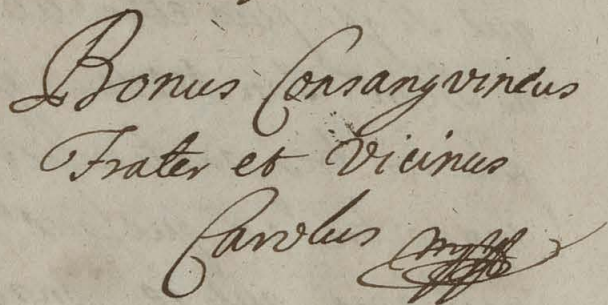 Bonus Consangvineus
Frater et Vicinus
Carolus